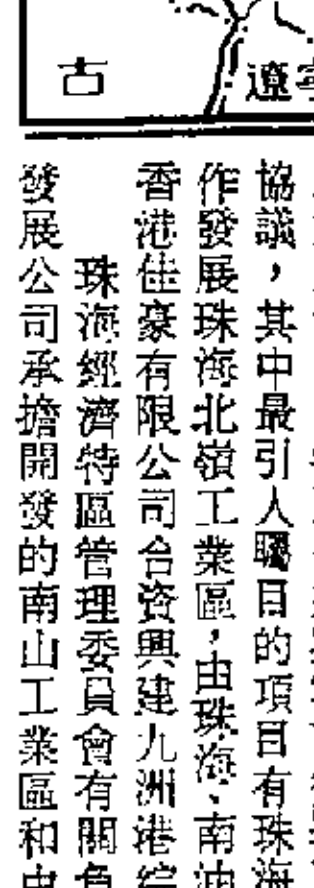 古
遼寧
協議，其中最引人矚目的項目有珠海
作發展珠海北嶺工業區，由珠海、南油
香港佳豪有限公司合資興建九洲港綜
珠海經濟特區管理委員會有關負
發展公司承擔開發的南山工業區和由